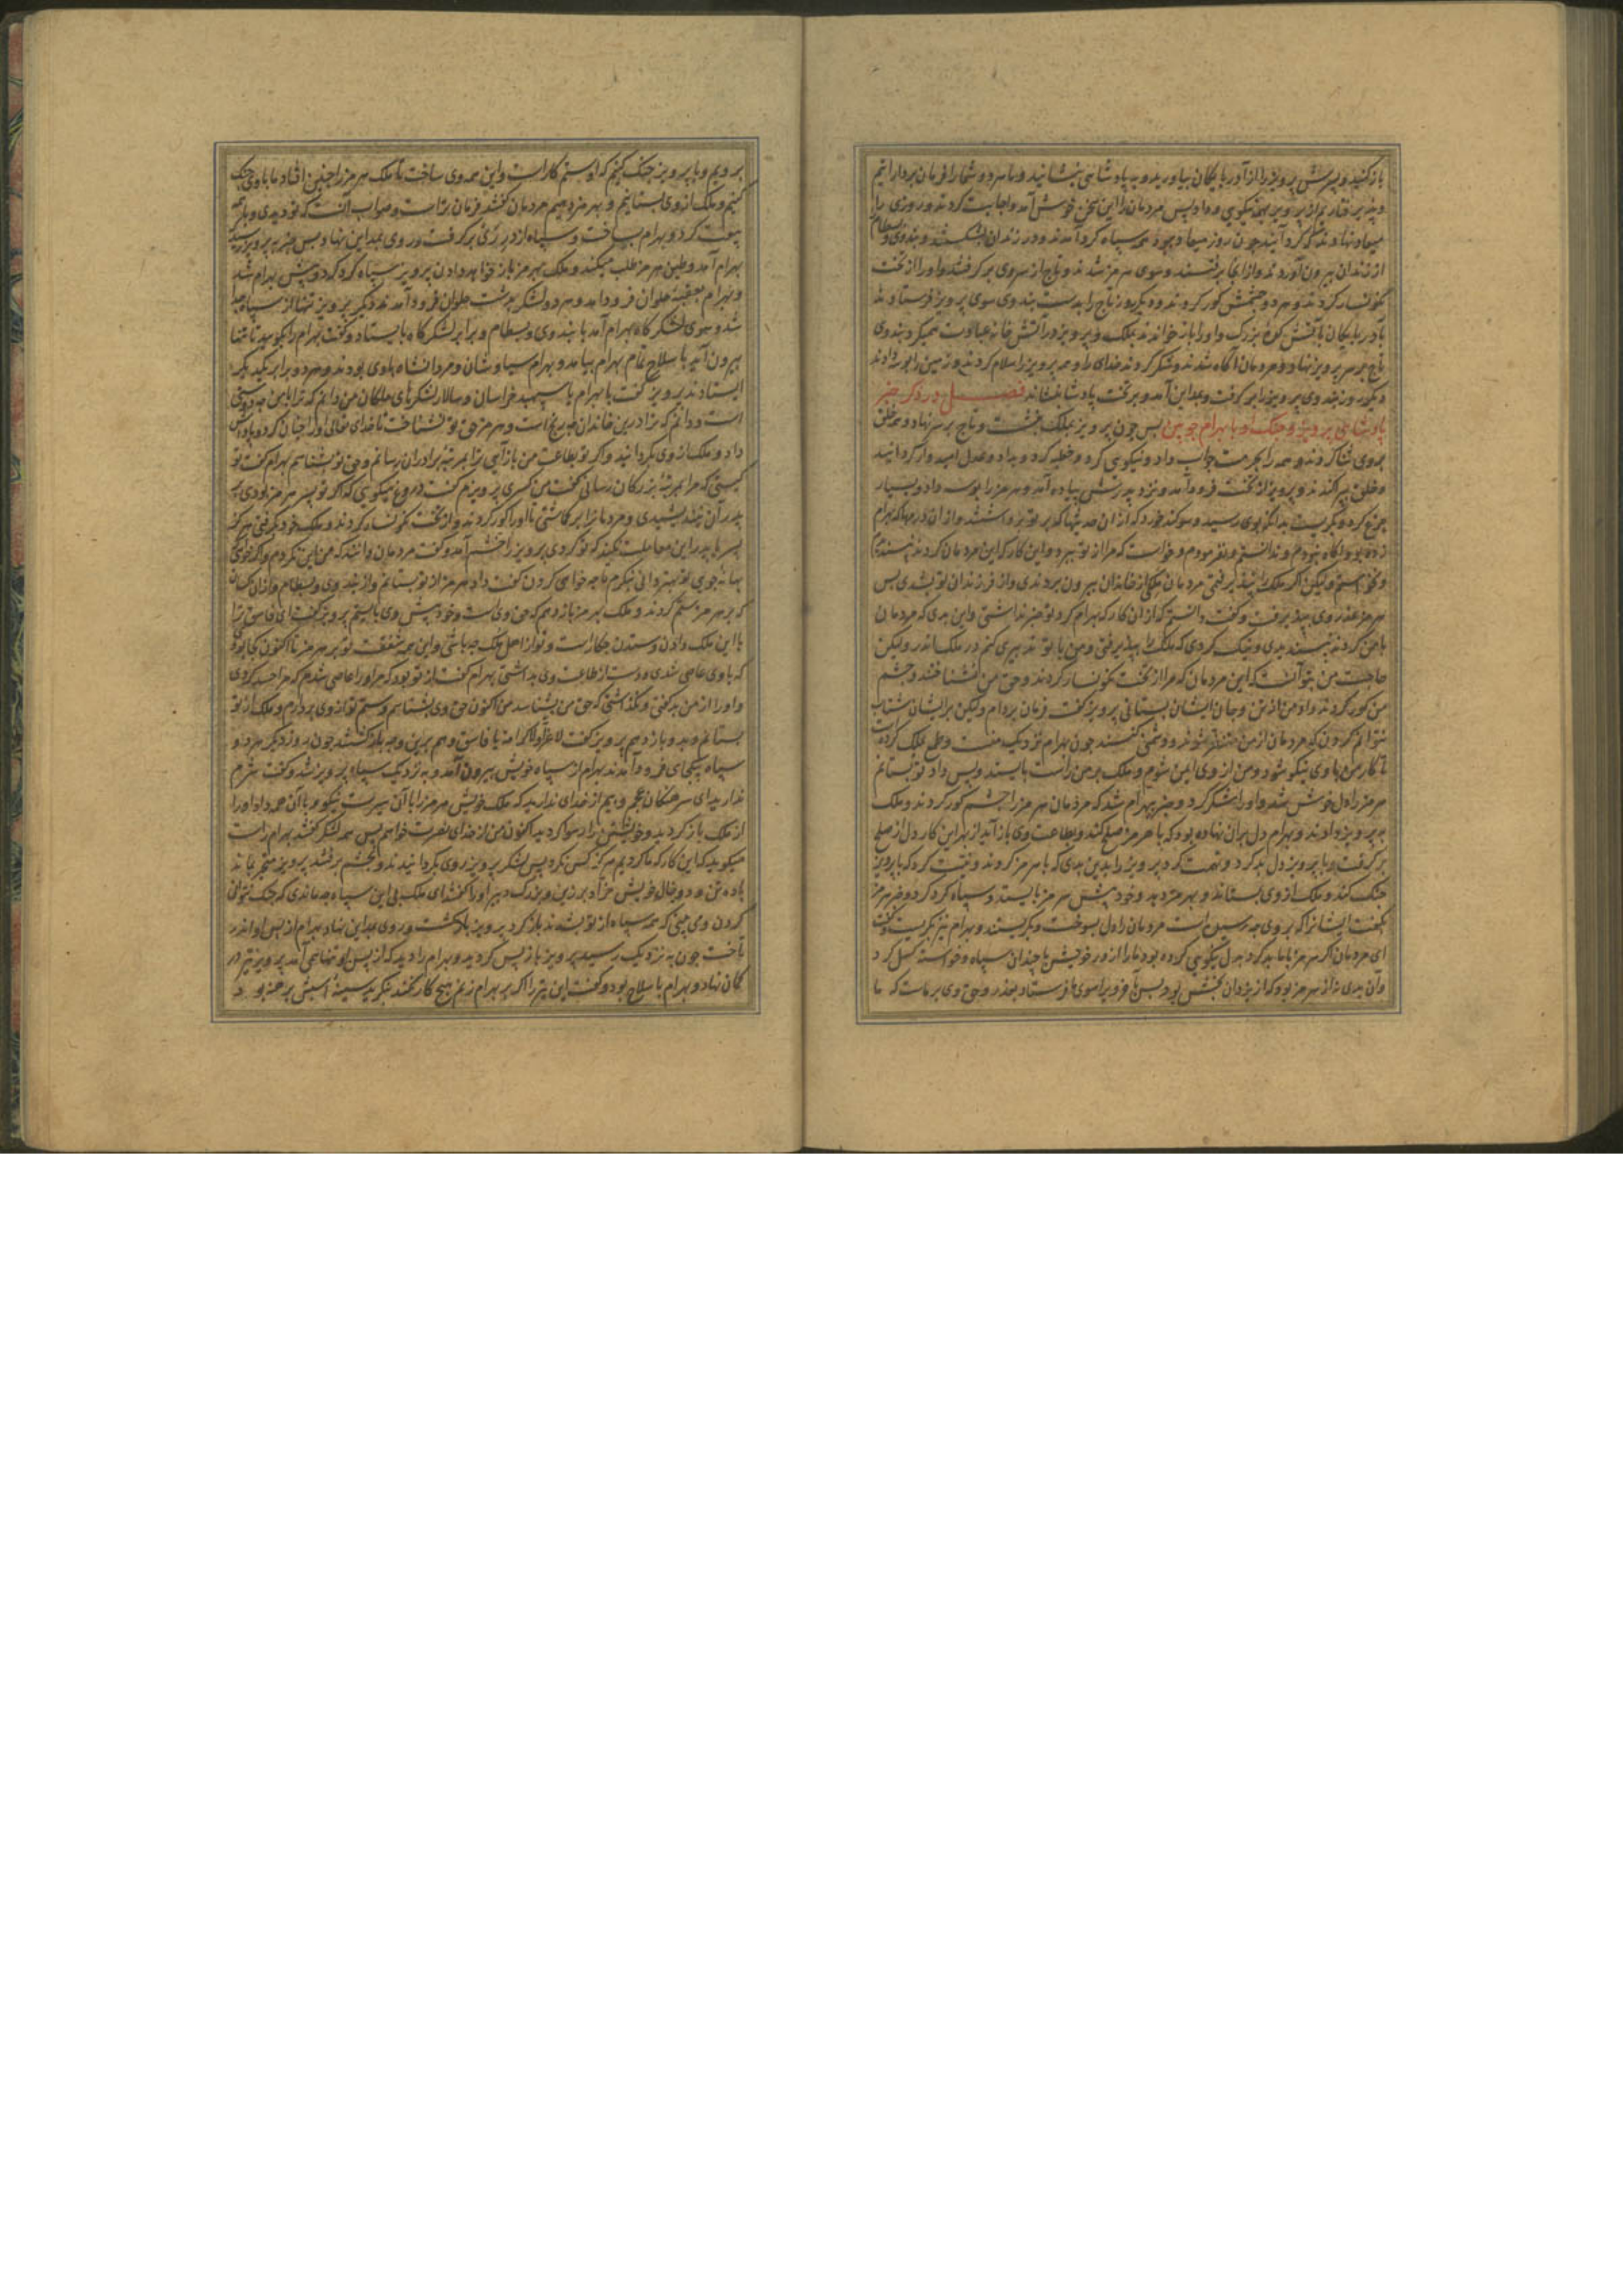 باز کنید و پسرش پرویز را از آذربایکان بیاورید و به پادشاهی بنشانید و ما هر دو شما را فرمان برداراتیم
و پذیرفتاریم از پرویز همه نیکویی و داد پس مردمان را این سخن خوش آمد و اجابت کردند و روزی را
میعاد نهادند که گرد آیند چون روز میعاد بود همه سپاه گرد آمدند و در زندان بشکستند و بندوی و بسطام را
از زندان بیرون آوردند و از آنجا برفتند و سوی هرمز شدند و تاج از سر وی بر گرفتند و او را از تخت
نگونسار کردند و هر دو چشمش کور کردند و دیگر روز تاج را بدست بندوی سوی پرویز فرستادند
بآذربایکان بآتش کوه بزرک و او را باز خواندند بملک و پرویز در آتش خانه عبادت همیکرد بندوی
تاج بر سر پرویز نهاد و مردمان آگاه شدند و شکر کردند خدای را و همه پرویز را سلام کردند و زمین را بوسه دادند
دیگر روز بندوی پرویز را بر گرفت و بمداین آمد و بر تخت پادشاه بنشاند فصل در ذکر خبر
پادشاهی پرویز و جنک او با بهرام چوبین پس چون پرویز بملک بنشست و تاج بر سر نهاد و همه خلق
بر وی ثنا کردند و همه را بحرمت جواب داد و نیکویی کرد و خطبه کرد و بداد و عدل امیدوار کردانید
و خلق بپراکندند و پرویز از تخت فرود آمد و نزد پدرش پیاده آمد و هرمز را بوسه داد و بسیار
جزع کرد و بگریست بدانکه بوی رسید و سوگند خورد که از ان
زده بود آگاه نبودم و ندانستم و نفرمودم و خواست که مرا از تو ببرد و این کار که این مردمان کردند نپسندیدم
و نخواستم ولیکن اگر ملک را نپذیرفتمی مردمان ملک از خاندان بیرون بردندی و از فرزندان تو بشدی پس
هرمز عذر وی بپذیرفت و گفت دانستم که از ان کار که بهرام کرد تو خبر نداشتی و این بدی که مردمان
با من کردند نپسندیدی و نیک کردی که ملک را بپذیرفتی و من با تو تدبیری کنم در ملک اندر ولیکن
حاجت من بتو آنست که این مردمان که مرا از تخت نگونسار کردند و حق من نشناختند و چشم
من کور کردند داد من از تن و جان ایشان بستانی پرویز گفت فرمان بردارم ولیکن برایشان شتاب
نتوانم کردن که مردمان از من متنفر شوند و دشمنی کنند چون بهرام نزدیک منست و طمع ملک کرده است
تا کار من با وی نیکو شود و من از وی ایمن شوم و ملک بر من راست بایستد و پس داد تو بستانم
هرمز را دل خوش شد و او را شکر کرد و خبر ببهرام شد که مردمان هرمز را چشم کور کردند و ملک
به پرویز دادند و بهرام دل بران نهاده بود که با هرمز صلح کند و بطاعت وی باز آید از بهر این کار دل از صلح
بر گرفت و با پرویز دل بد کرد و تهمت کرد پرویز را بدین بدی که با هرمز کردند و نیت کرد که با پرویز
جنک کند و ملک از وی بستاند و بهرمز دهد و خود پیش هرمز بایستد و سپاه گرد کرد و خبر هرمز
بگفت ایشانرا که بر وی چه رسیده است مردمان را دل بسوخت و بگریستند و بهرام نیز بگریست و گفت
ای مردمان اگر هرمز با ما بد کرد بدل نیکویی کرده بود ما را از در خویش با چندان سپاه و خواسته گسیل کرد
و آن بدی نه از هرمز بود که از یزدان بخشش بود پس سوی ما فرستاد بعذر و حق وی بر ماست که ما
برویم و با پرویز جنک کنیم که او ستم کار است و این همه وی ساخت تا ملک هرمز را چنین افتاد ما با وی جنک
کنیم و ملک از وی بستانیم و بهرمز دهیم مردمان گفتند فرمان تراست و صواب آنست که تو دیدی و با همه
بیعت کرد و بهرام بساخت و سپاه از در ری بر گرفت و روی بمداین نهاد پس خبر به پرویز رسید
بهرام آمد و ملک هرمز طلب میکند و ملک بهرمز باز خواهد دادن پرویز سپاه گرد کرد و پیش بهرام شد
و بهرام بعقبه حلوان فرود آمد و هر دو لشکر بدشت حلوان فرود آمدند دیگر پرویز تنها از سپاه جدا
شد و سوی لشکر گاه بهرام آمد با بندوی و بسطام و برابر لشکر گاه بایستاد و گفت بهرام را بگویید تا تنها
بیرون آید با سلاح تمام بهرام بیامد و بهرام سیاوشان و مردانشاه باوی بودند و هر دو برابر یکدیگر
ایستادند پرویز گفت یا بهرام یا سپهبد خراسان و سالار لشکرهای ملکان من دانم که ترا با من چه دوستی
است و دانم که ترا درین خاندان چه رنج است و هرمز حق تو نشناخت تا خدای تعالی او را چنان کرد و پاداش
داد و ملک از وی بگردانید و اگر تو بطاعت من باز آیی ترا بمرتبه برادران رسانم و حق تو بشناسم بهرام گفت تو
کیستی که مرا بمرتبه بزرکان رسانی گفت من کسری پرویزم گفت دروغ میگویی که اگر تو پسر هرمز بودی بر
پدر آن نپسندیدی و مردمانرا بر نگاشتی تا او را کور کردند و از تخت نگونسار کردند و ملک خود بگرفتی هرگز
پسر با پدر این معاملت نکند که تو کردی پرویز را خشم آمد و گفت مردمان دانند که من این نکردم و اگر خدای
بهانه جویی تو بهتر دانی بنگرم تا چه خواهی کردن گفت داد هرمز از تو بستانم و از بندوی و بسطام و از ان کسان
که بر هرمز ستم کردند و ملک بهرمز باز دهم که حق وی است و خود پیش وی بایستم پرویز گفت ای فاسق ترا
با این ملک دادن و ستدن چکار است و تو از اهل ملک چه باشی و این همه شفقت تو بر هرمز تا اکنون کجا بود
که با وی عاصی شدی و دست از طاعت وی بداشتی بهرام گفت از تو بود که مرا ورا عاصی شدم که مرا حسد کردی
و او را از من بد گفتی و نگذاشتی که حق من بشناسد من اکنون حق وی بشناسم و ستم تو از وی بردارم و ملک از تو
بستانم و بدو باز دهم پرویز گفت لا و لا کرامة یا فاسق و هم برین وجه باز گشتند چون روز دیگر هر دو
سپاه بیکجای فرود آمدند بهرام از سپاه خویش بیرون آمد و به نزدیک سپاه پرویز شد و گفت شرم
ندارید ای سرهنگان عجم و بیم از خدای ندارید که ملک خویش هرمز را با آن سیرت نیکو و با آن همه داد او را
از ملک باز کردید و خویشتن را رسوا کردید اکنون من از خدای نصرت خواهم پس همه لشکر گفتند بهرام راست
میگوید که این کار که ما کردیم هرگز کس نکرد پس لشکر پرویز روی بگردانیدند و بخشم برفتند پرویز متحیر بماند
با ده تن و دو خال خویش مر او را گفتند ای ملک بی این سپاه چه ماندی که جنک نتوانی
کردن و می بینی که همه سپاه از تو بشدند باز گرد پرویز باز گشت و روی بمداین نهاد بهرام از پس او اندر
تاخت چون به نزدیک رسید پرویز باز پس گردید و بهرام را دید که از پس او تنها همی آمد پرویز تیر در
کمان نهاد و بهرام با سلاح بود و گفت این تیر را اگر بر بهرام زنم هیچ کار نکند بنگرید سینه اسبش برهنه بود